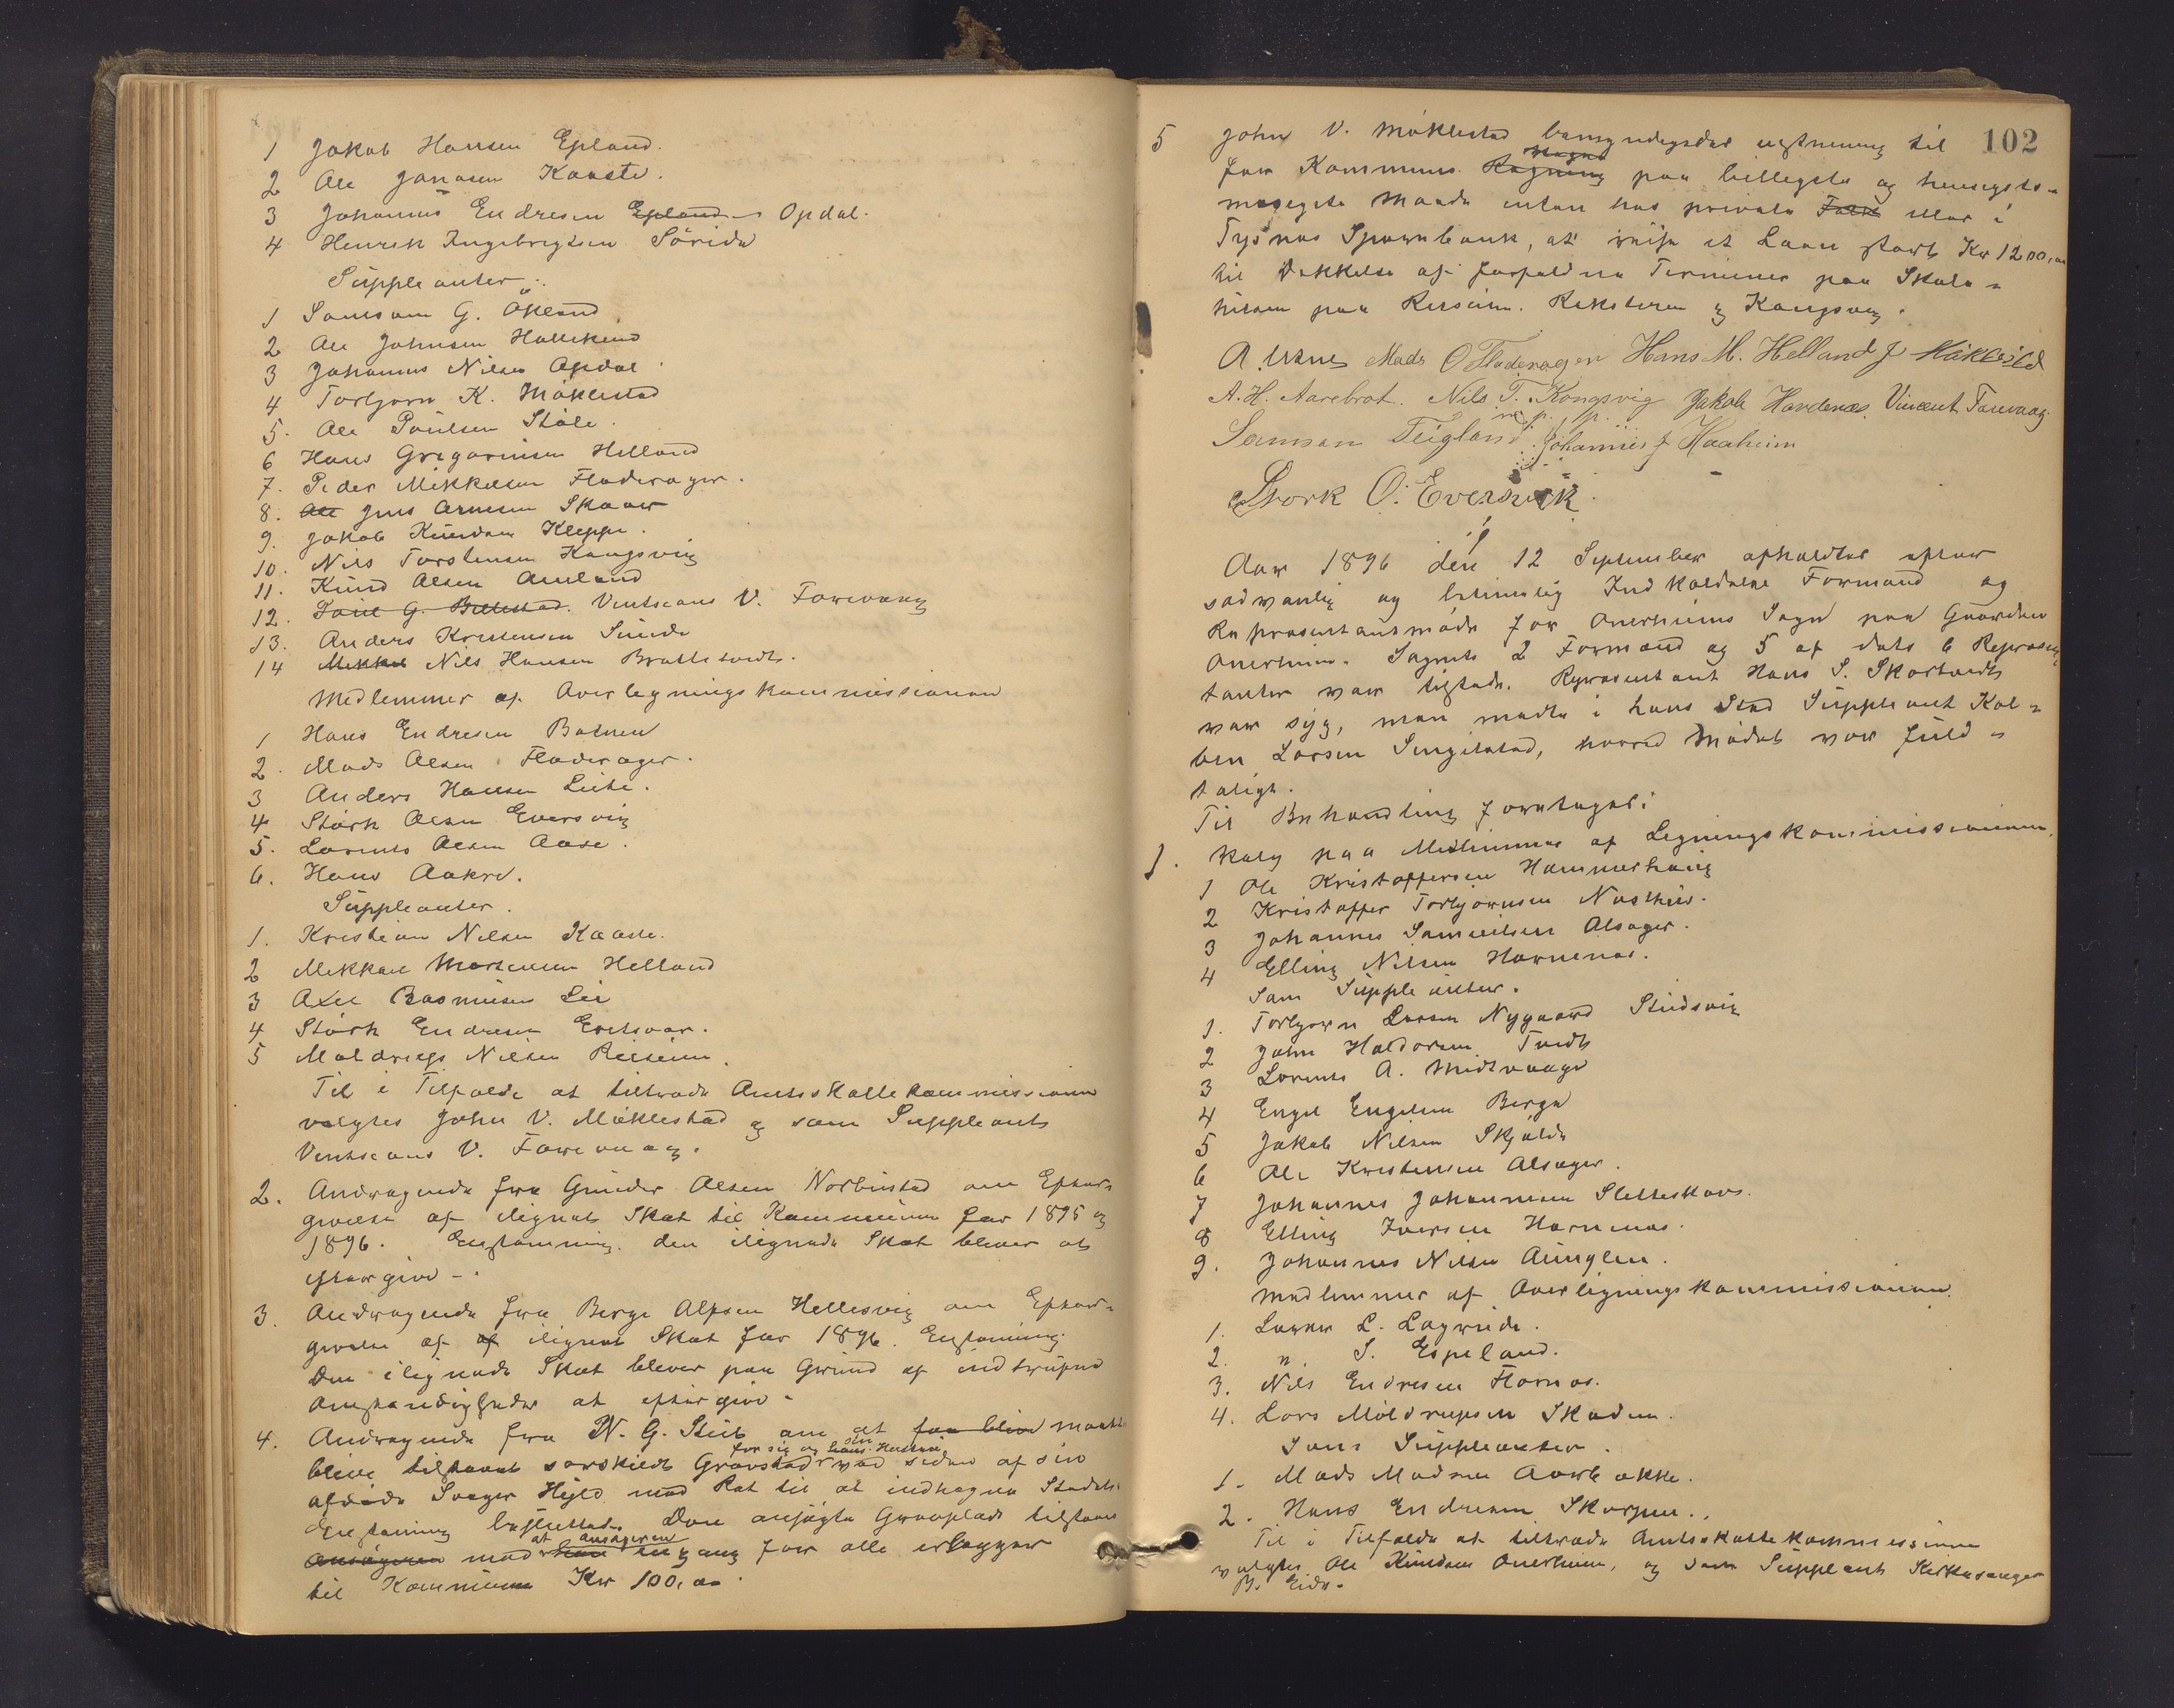 1 Jakob Hansen Epland.
2 Ole Janasen Kaaste.
3 Johannes Endresen Epland Opdal.
4 Henrik Ingebrigtsen Söride
Suppleanter.
1 Samson G. Økland
2 Ole Johnsen Hallekind
3 Johannes Nilsen Opdal
4 Torbjørn K. Møklestad
5. Ole Poulsen Støle.
6 Hans Gregoriusen Helland
7. Peder Mikkelsen Fladerager.
8. Ole Jens Arnesen Skaar
9. Jakob Knudsen Kleppe.
10. Nils Torstensen Kongsvig
11. Knud Olsen Amland
12. Vintseans V. Farevaag
13. Anders Kristensen Sunde
14 Mikkel Nils Hansen Brattetvedt.
Medlemmer af Overlegningskommissionen
1 Hans Endresen Botnen
2. Mads Olsen Fladerager.
3 Anders Hansen Leite.
4 Størk Olsen Eversvig
5. Lorents Olsen Aase.
6. Hans Aakre.
Suppleanter.
1. Kristian Nilsen Kaaste.
2 Mikkel Mortensen Helland
3 Axel Rasmusen Lie
4. Størk Endresen
5 Moldrups Nilsen Reiseim.
Til i Tilfælde at tiltræde Amtsskattekommissionen
valgtes John V. Møklestad og som Suppleant
Vintseans V. Farevaag.
2. Andragende fra Gunder Olsen Norbustad om Efter-
givelse af ilignet Skat til Kommunen for 1895 og
1896. Enstemmig. den ilignede Skat bliver at
eftergive -.
3. Andragende fra Berge Alfsen Hellesvig om Efter-
givelse af af ilignet Skat for 1896. Enstemmig.
Den ilignede Skat bliver paa Grund af indtrufne
Omstændigheder at eftergive -
4. Andragende fra N. G. om at faa blive maatte
for sig og hans sin Hustru
blive tilstaaet særskildt Gravstad ved siden af sin
afdøde Svoger Hejld med Ret til at indhegne Stedet.
Enstemmig besluttedes Den ansøgte Gravplads tilstaaes
at Ansøgeren
Ansøgeren mod en gang for alle erlægger
til Kommunen Kr 100,00
102
5 John V. Møklestad bemyndigedes enstemmig til
for Kommunens Regning paa billigste og hensigts-
mæssigste Maade enten hos private Folk eller i
Tysnes Sparebank, at reise et Laan stort Kr 1200,00
til Dækkelse af forfaldne Terminer paa Skole-
husene paa Reiseim. Reksteren og Kongsvig.
A. Uknes Mads O Fladerager Hans M. Helland J Møklestad
A. H. Aarebrot. Nils T. Kongsvig Jakob Hardenæs. Vincent Farevaag.
m. p. p.
Samson Teigland. Johannes J Haaheim
Størk O. Eversvik.
Aar 1896 den 12 September afholdtes efter
sædvanlig og betimelig Indkaldelse Formand og
Repræsentantmøde for Onarheims Sogn paa Gaarden
Onarheim. Sognets 2 Formænd og 5 af dets 6 Repræsen-
tanter var tilstede. Repræsentant Hans S. Skartvedt
var syg, men mødte i hans Sted Suppleant Kol-
ben Larsen Singelstad, hvorved Mødet var fuld-
taligt.
Til Behandling foretages:
1. Valg paa Medlemmer af Ligningskommissionen.
1 Ole Kristoffersen Hammerhaug
2 Kristoffer Torbjørnsen Nasthus.
3 Johannes Samuelsen Alsager.
4 Elling Nilsen Hornenæs.
Som Suppleanter.
1. Torbjørn Larsen Nygaard Studsvig
2 John Haldorsen Tvedt
3 Lorents A. Midtvaage
4 Engel Engelsen Berge
5 Jakob Nilsen Skjolde
6 Ole Kristensen Alsager.
7 Johannes Johannesen Sletteskov.
8 Elling Iversen Hornenæs.
9. Johannes Nilsen Aunglen.
Medlemmer af Overligningskommissionen.
1. Lars L. Lagreide.
2. n. S. Espeland.
3. Nils Endresen Flornes.
4. Lars Moldrupsen Skaden.
Som Suppleanter.
1. Mads Madsen Aarbakke.
2. Hans Endresen Skorpen.
Til i Tilfælde at tiltræde Amtsskattekommissionen
valgtes Ole Knudsen Onarheim, og som Suppleant Kirkesanger
B. Eide.